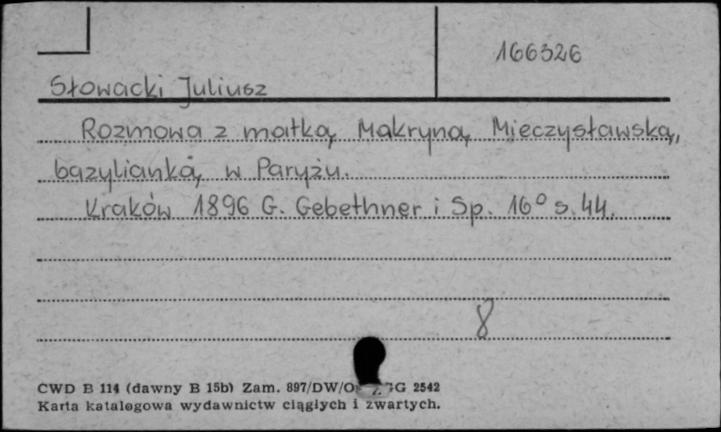 166326
Słowacki Juliusz
Rozmowa z matką, Makryną, Mieczysławską,
bazylianką, w Paryżu.
Kraków 1896 G. Gebethner i Sp. 16° s. 44.
8
CWD B 114 (dawny B 15b) Zam. 897/DW/O ZG 2542
Karta katalogowa wydawnictw ciągłych i zwartych.